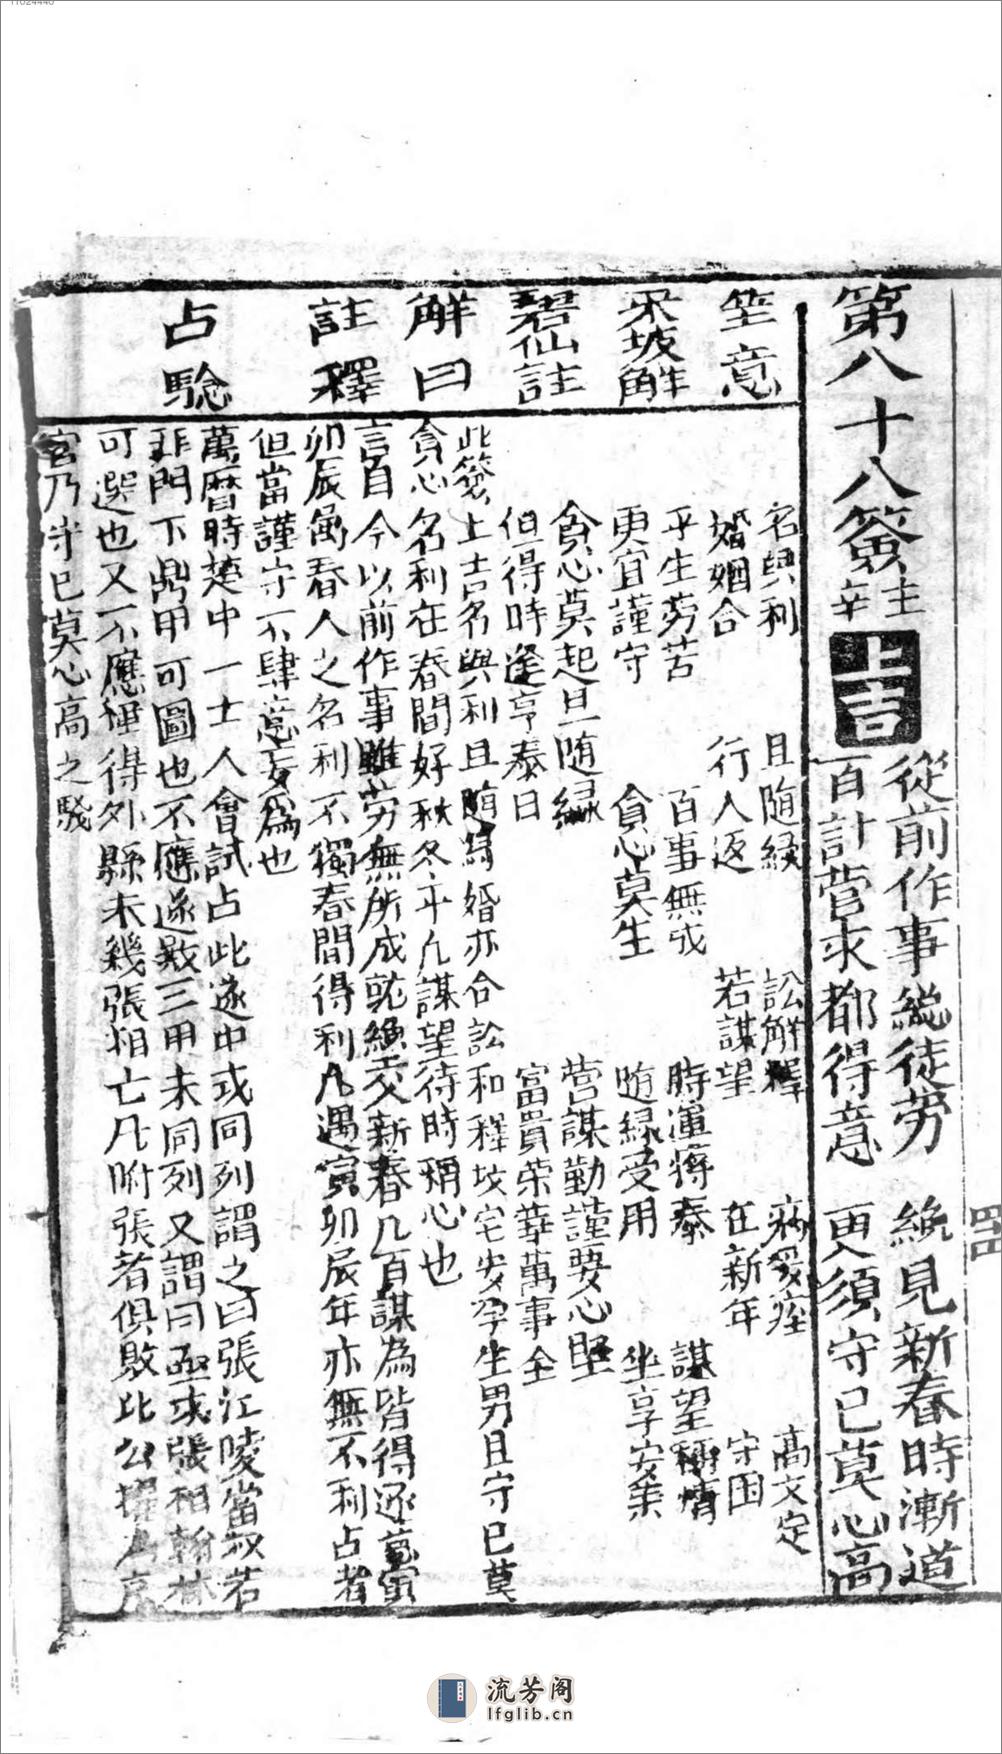 第八十八籤 辛主 上吉
從前作事總徒勞 纔見新春時漸道
百計營求都得意 更須守己莫心高
聖意
名與利 且随緣 訟解釋 病愛痊 高文定
婚姻合 行人返 若謀望 在新年 守困
东坡解
平生劳苦 百事無成 時運將泰 謀望稱情
更宜謹守 貪心莫生 随緣受用 坐享安榮
碧仙註
貪心莫起且随緣 营謀勤謹要心堅
但得時逢亨泰日 富貴荣華萬事全
解曰
此簽上吉名與利且随緣婚亦合訟和釋坟宅安孕生男且守己莫
貪心名利在春間好秋冬平凡謀望待時稱心也
註釋
言自今以前作事雖劳無所成就纔交新春凡百謀為皆得遂意寅
卯辰属春人之名利不獨春間得利凡遇寅卯辰年亦無不利占者
但當謹守不肆意妄為也
占驗
萬暦時楚中一士人會試占此遂中或同列謂之曰張江陵當叙若
非門下鼎甲可圖也不應遂殿三甲末同列又謂曰亟求張相翰林
可選也又不應僅得外縣未幾張相亡凡附張者俱敗此公擢為京
官乃守己莫心高之驗
四四
流芳阁
lfglib.cn
11024440